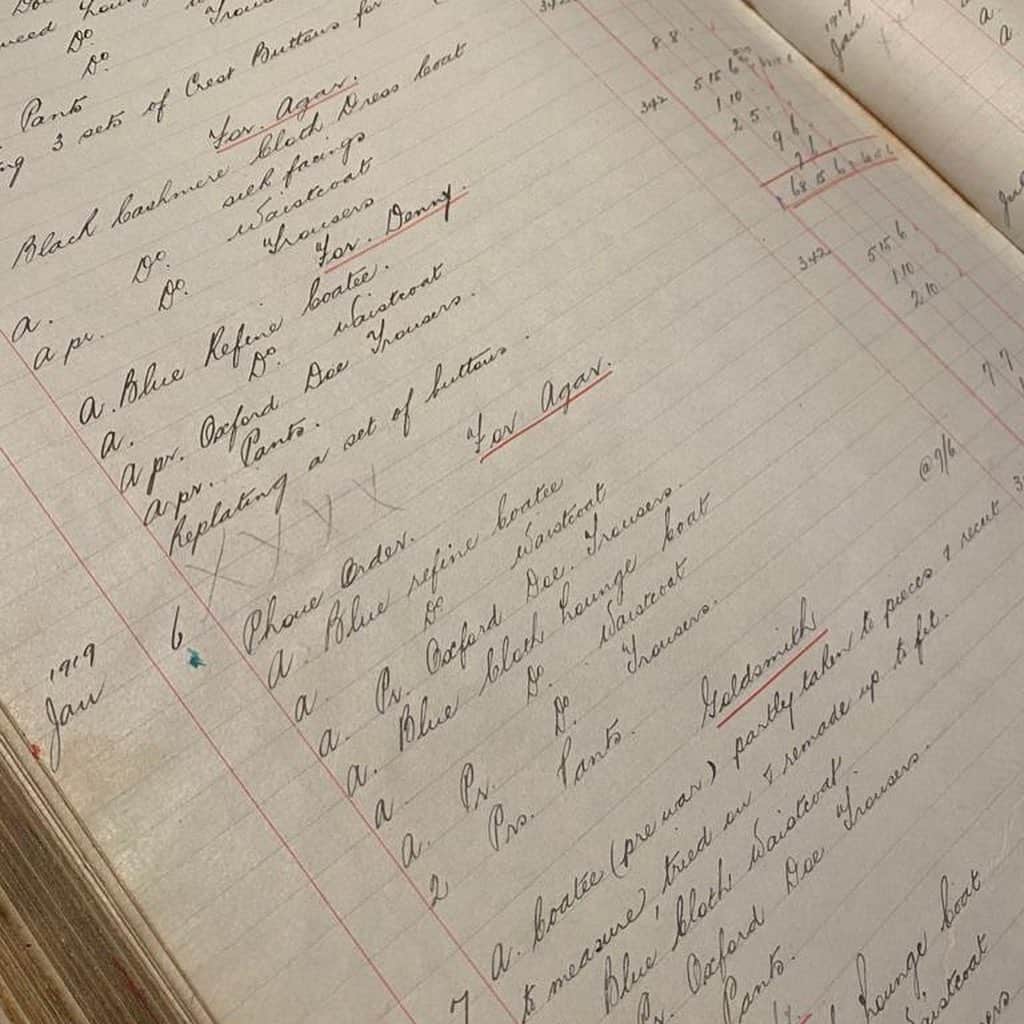 Do
Do
Pants
3 sets of Crest Buttons for
For Agar.
Black Cashmere Cloth Dress Coat
silk facings
a. Do. Waistcoat
a pr. Do. Trousers
For Denny.
a. Blue Refine Coatee.
a. Do. Waistcoat
a pr. Oxford Doe Trousers.
a pr. Pants.
Replating a set of buttons.
For Agar.
1919
Jan 6 Phone Order.
a. Blue refine Coatee
a. Do Waistcoat
a. Pr. Oxford Doe. Trousers.
a. Blue Cloth Lounge Coat
a. Do. Waistcoat
a. Pr. Do. Trousers.
2 Prs. Pants. @ 7/6
Goldsmith
7 a. Coatee (pre war) partly taken to pieces & recut
to measure, tried on & remade up to fit.
Blue Cloth Waistcoat.
Pr. Oxford Doe Trousers.
Pants.
Lounge Coat
Waistcoat
342
8.8.
342
5 15 6
1.10.
2 5.
9 6
7 6
342
5 15 6
1.10.
2.10.
7 7
1919
Jan
a.
a